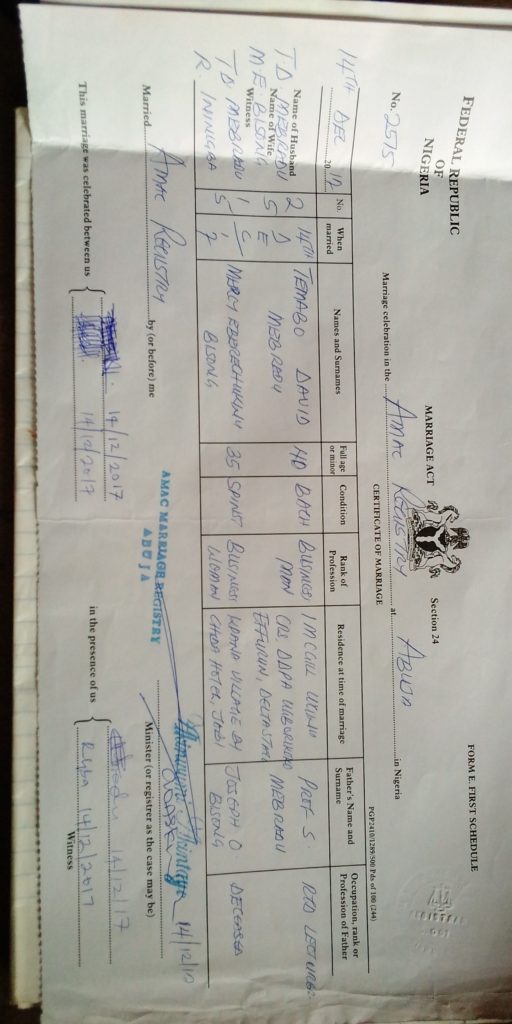 FORM E. FIRST SCHEDULE
FEDERAL REPUBLIC
OF
NIGERIA
MARRIAGE ACT
Section 24
No. 2575
CERTIFICATE OF MARRIAGE
PGP2410/1289/500 Pds of 100 (244)
Marriage celebration in the AMAC REGISTRY at ABUJA in Nigeria
14TH DEC 20 17
No.
When married
Names and Surnames
Full age or minor
Condition
Rank of Profession
Residence at time of marriage
Father's Name and Surname
Occupation, rank or Profession of Father
Name of Husband
T. D. MEBRADU
Name of Wife
M. E. BISONG
Witness
T. D. MEBRADU
R. ININGBA
2 5 1 5
14TH DEC 17
DAVID MEBRADU
BACH
BUSINESS MAN
EFFURUN, DELTA STATE
PROF S. MEBRADU
RTD LECTURER
MERCY BISONG
35
SPINST
BUSINESS WOMAN
VILLAGE BY HOTEL, JABI
JOSEPH O. BISONG
DECEASED
Married AMAC REGISTRY by (or before) me
14/12/17
AMAC MARRIAGE REGISTRY
ABUJA
Minister (or registrer as the case may be)
This marriage was celebrated between us
14/12/2017
14/12/2017
in the presence of us
14/12/17
14/12/2017
Witness